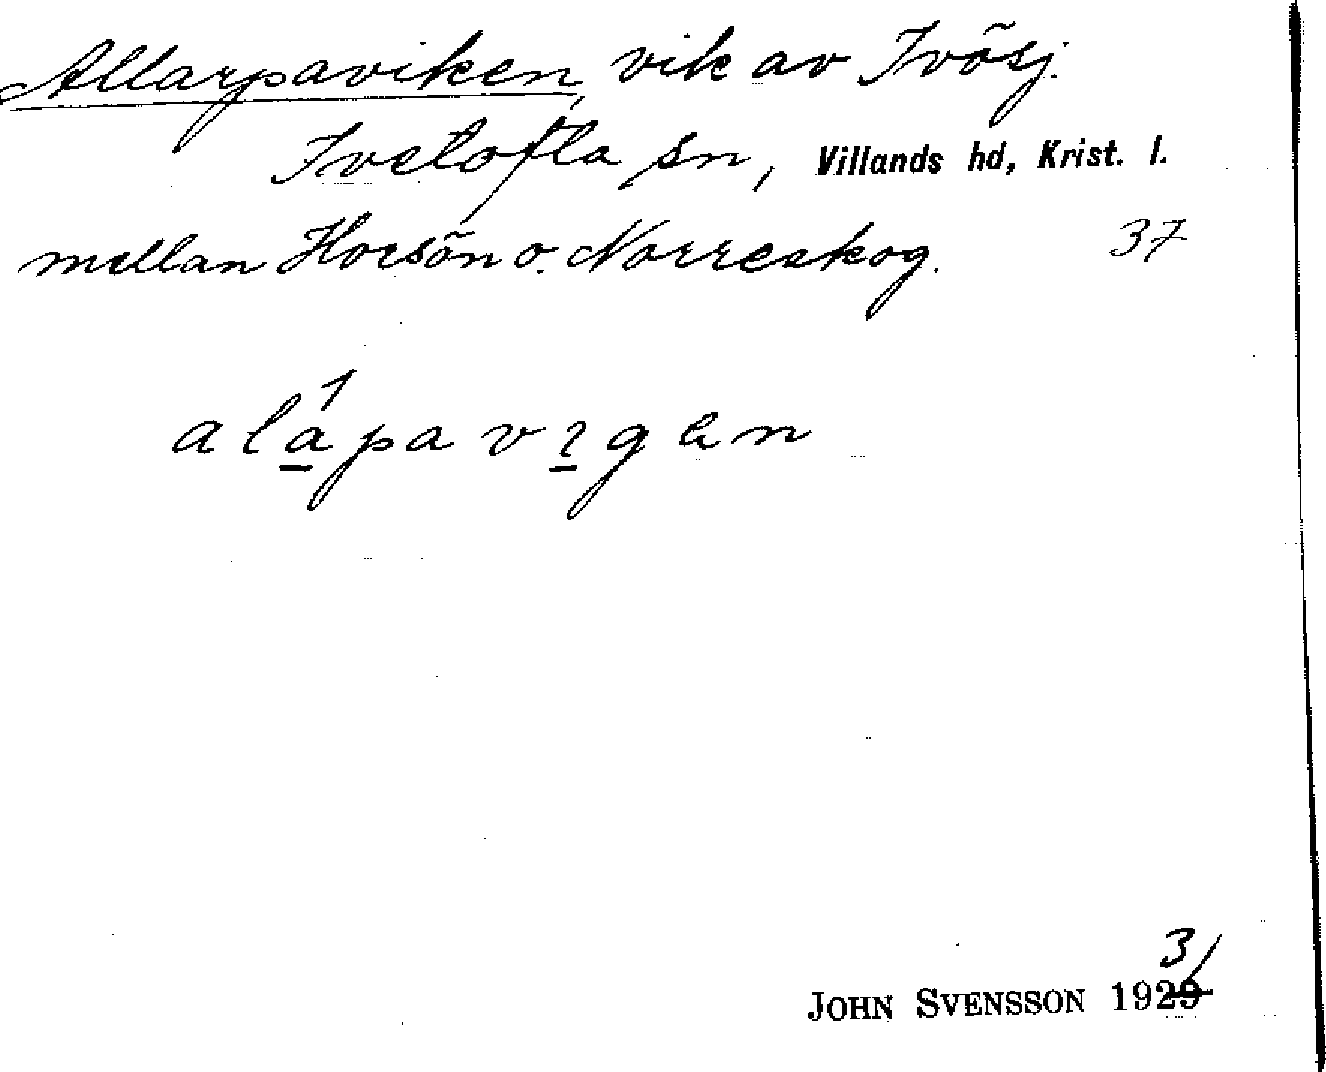 Allarpaviken, vik av Ivösj.
Ivetofta sn, Villands hd, Krist. l.
mellan Horsön o. Norreskog. 37
alápavıgen
JOHN SVENSSON 1929 31